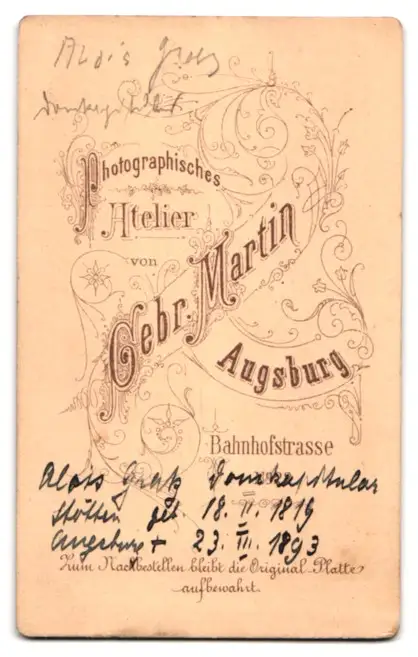 Alois Gratz
Domkapitular
Photographisches
Atelier
von
Gebr. Martin
Augsburg
Bahnhofstrasse
Alois Gratz Domkapitular
Stötten geb. 18. II. 1819
Augsburg + 23. III. 1893
Zum Nachbestellen bleibt die Original-Platte
aufbewahrt.